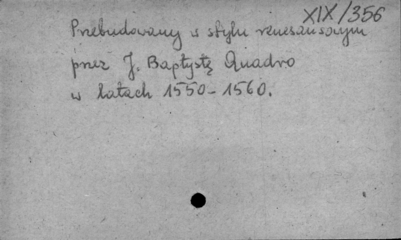 XIX/356
Przebudowany w stylu renesansowym
przez J. Baptystę Quadro
w latach 1550-1560.